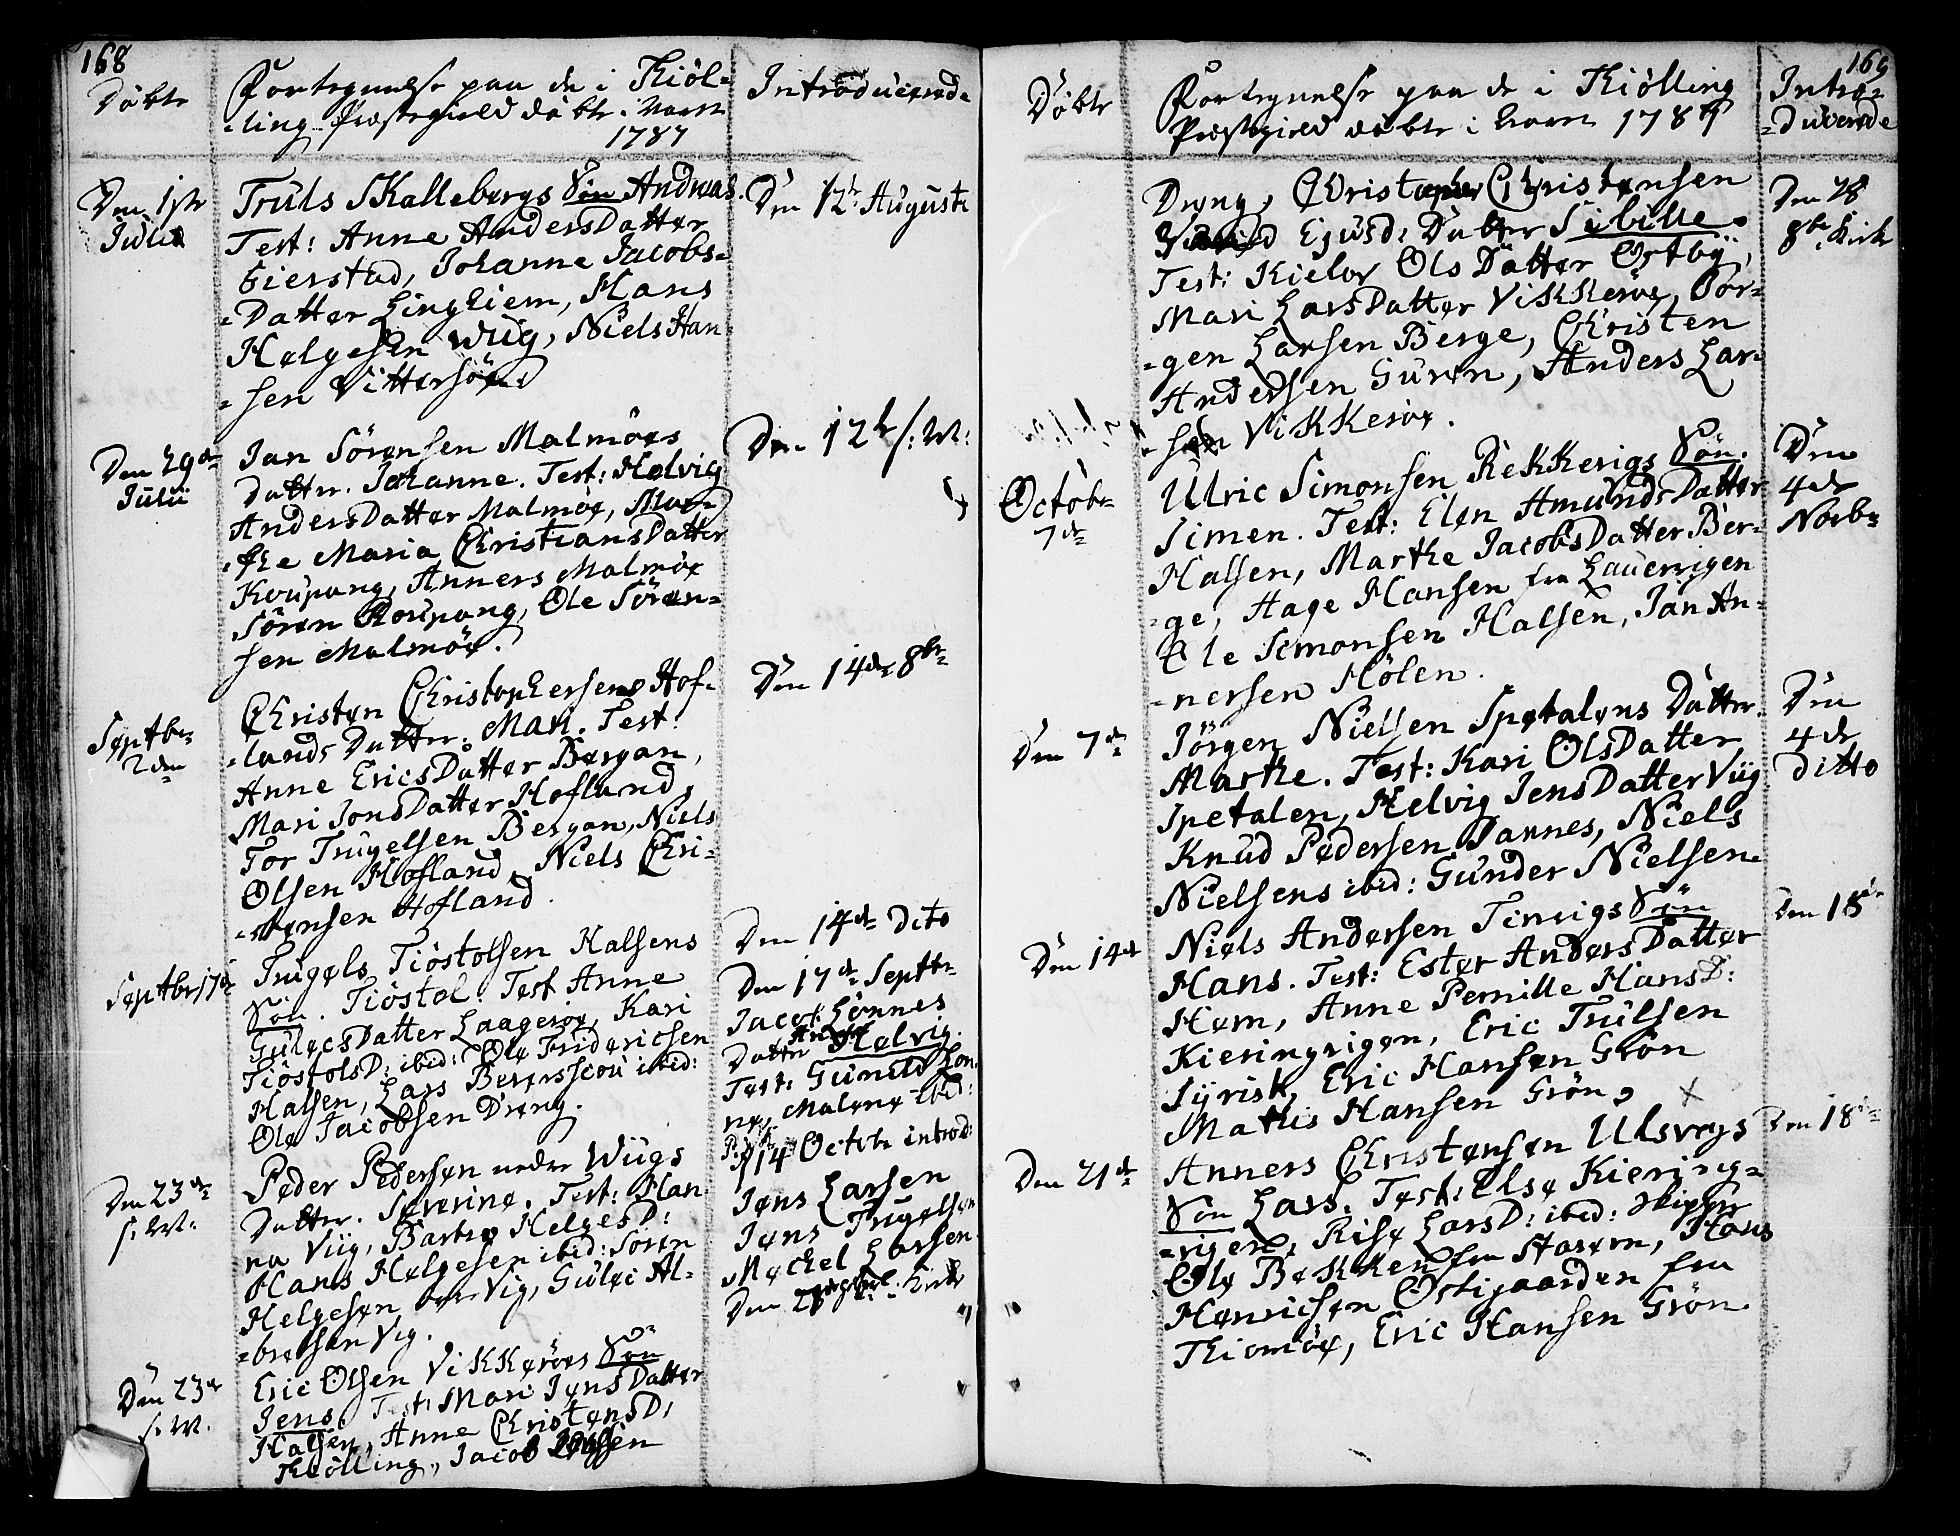 168
Döbte
Fortegnelse paa de i Thiöl-
-ling Præstegield döbte i Aaret
1787
Introducerede
Den 1ste
Julii
Truls Skallebergs Sön Andreas.
Test: Anne AndersDatter
Gierstad, Johanne Jacobs-
-Datter Lingliem, Hans
Helgesen Wiig, Niels Han-
-sen Vittersöe.
Den 12te Augusti
Den 29de
Julii
Jan Sörensen Malmöes
Datter. Johanne. Test: Helvig
AndersDatter Malmöe, Mar-
-the Maria ChristiansDatter
Koupang, Anners Malmöe
Sören Koupang, Ole Sören-
sen Malmöe.
Den 12te s: M:
Septbr
2den
Christen Christophersens Hof-
-lands Datter. Mari. Test:
Anne EricsDatter Bergan,
Mari JonsDatter Hofland,
Tor Trugelsen Bergan, Niels
Olsen Hofland, Niels Chri-
-stensen Hofland.
Den 14de 8br
Septbr 17de
Trugels Tiöstolsen Halsens
Sön. Tiöstol. Test Anne
GulecsDatter Laagesöe, Kari
TiöstolsD: ibid: Ole Friderichsen
Halsen, Lars Bererscou ibid:
Ole Jacobsen Dreng.
Den 14de Dito
Den 17de Septbr
Jacob Lönnes
Datter Helvig.
Test: Gunild Lön-
ne, Malene ibid:
14 Octobr introd:
Jens Larsen
Jens Trugelsen
Mechel Larsen
Den 28 Kirke
Den 23de
s: M:
Peder Pedersen nedre Wiigs
Datter. Severine. Test: Han-
na Viig, Barbro HelgesD:
Hans Helgesen ibid: Sören
Helgesen Vig, Guleci Al-
-bretsen Vig.
Den 23de
s: M.
Eric Olsen Vikkeröes Sön
Jens. Test: Mari JensDatter
Halsen, Anne ChristensD:
Thiölling, Jacob
169
Döbte
Fortegnelse paa de i Thiölling
Præstegield döbte i Aaret 1787
Intro-
-ducerede
Dreng, Christopher Christensen
Ejusd: Datter Sibille.
Test: Kielov OlsDatter Östbÿ,
Mari LarsDatter Vikkeröe, Jör-
-gen Larsen Berge, Christen
Andersen Guren, Anders Lar-
-sen Vikkeröe.
Den 28
8br Kirke
Octobr
7de
Ulric Simonsen Rekkevigs Sön.
Simen. Test: Elen AmundsDatter
Halsen, Marthe JacobsDatter Ber-
-ge, Hage Hansen fra Lauervigen
Ole Simonsen Halsen, Jan An-
-nersen Hölen.
Den
4de
Novbr
Den 7de
Jörgen Nielsen Spetalens Datter.
Marthe. Test: Kari OlsDatter
Spetalen, Helvig JensDatter Viig
Knud Pedersen Sannes, Niels
Nielsens ibid: Gunder Nielsen.
Den
4de
Ditto
Den 14de
Niels Andersen Tinvigs Sön
Hans. Test: Ester AndersDatter
Hem, Anne Pernille HansD:
Kieringvigen, Eric Trulsen
Syrist, Eric Hansen Grön
Mathis Hansen Grön,
Den 18de
Den 21de
Anners Christensen Ulsvegs
Sön Lars. Test: Else Kiering-
-vigen, Rise LarsD: ibid: Skipper
Ole Bekken fra Stasern, Hans
Henricsen Östigaarden fra
Thiomöe, Eric Hansen Grön.
Den 18de